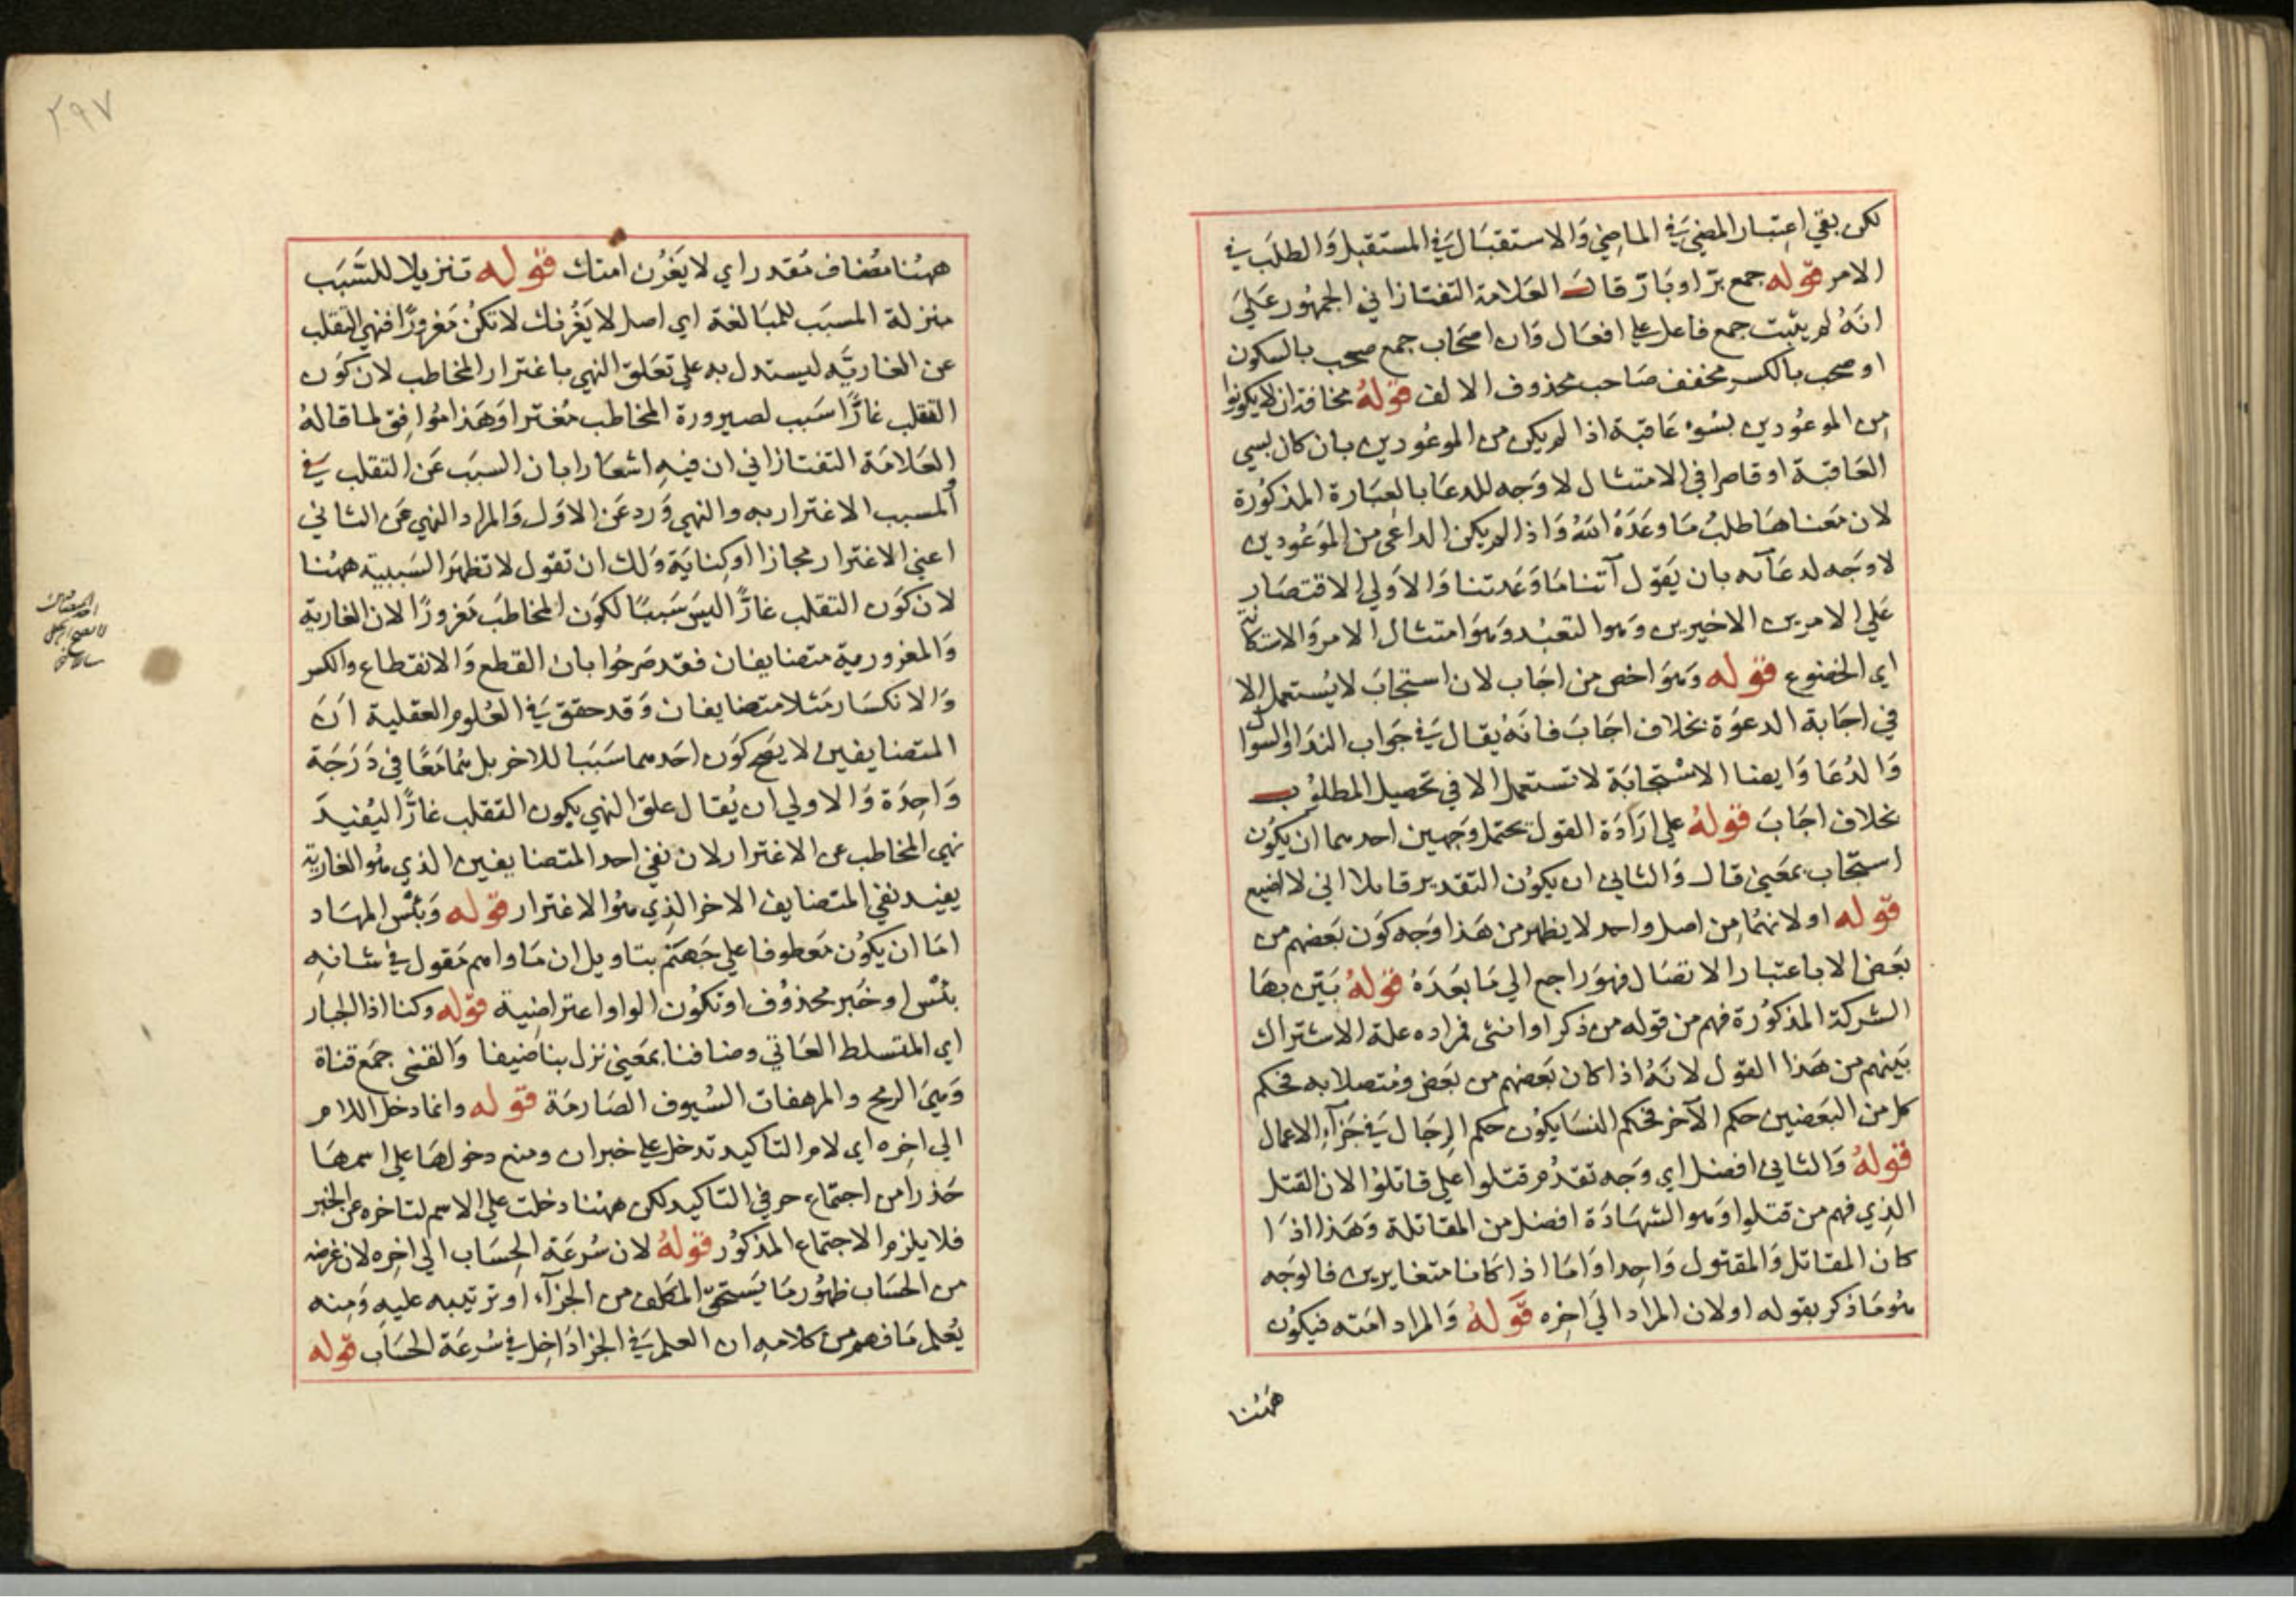 لكن بقي اعتبار المضي في الماضي والاستقبال في المستقبل والطلب في
الامر قوله جمع بر او بار قال العلامة التفتازاني الجمهور على
انه لم يثبت جمع فاعل على افعال وان اصحاب جمع صحب بالسكون
او صحب بالكسر مخفف صاحب محذوف الالف قوله مخافة ان لا يكونوا
من الموعودين بسوء عاقبة اذا لم يكن من الموعودين بان كان لسي
العاقبة او قاصرا في الامتثال لا وجه للدعا بالعبارة المذكورة
لان معناها طلب ما وعده الله واذا لم يكن الداعي من الموعودين
لا وجه لدعائه بان يقول آتنا ما وعدتنا والاولي الاقتصار
علي الامرين الاخيرين وهو التعبد وهو امتثال الامر والاستكانة
اي الخضوع قوله وهو اخص من اجاب لان استجاب لا يستعمل الا
في اجابة الدعوة بخلاف اجاب فانه يقال في جواب الندا والسوال
والدعا وايضا الاستجابة لا تستعمل الا في تحصيل المطلوب
بخلاف اجاب قوله علي ارادة القول يحتمل وجهين احدهما ان يكون
استجاب بمعني قال والثاني ان يكون التقدير قايلا اني لا اضيع
قوله او لانهما من اصل واحد لا يظهر من هذا وجه كون بعضهم من
بعض الا باعتبار الاتصال فهو راجع الي ما بعده قوله بين بها
الشركة المذكورة فهم من قوله من ذكر او انثى فمراده علة الاشتراك
بينهم من هذا القول لانه اذا كان بعضهم من بعض ومتصلا به فحكم
كل من البعضين حكم الآخر فحكم النسا يكون حكم الرجال في جزآء الاعمال
قوله والثاني افضل اي وجه تقدم قتلوا علي قاتلوا لان القتل
الذي فهم من قتلوا وهو الشهادة افضل من المقاتلة وهذا اذا
كان المقاتل والمقتول واحدا واما اذا كانا متغايرين فالوجه
هو ما ذكر بقوله او لان المراد الي اخره قوله والمراد امته فيكون
ههنا
٢٩٧
ههنا مضاف مقدر اي لا يغرن امتك قوله تنزيلا للسبب
منزلة المسبب للمبالغة اي اصل لا يغرنك لا تكن مغرورا فنهي التقلب
عن الغارية ليستدل به علي تعلق النهي باغترار المخاطب لان كون
التقلب غارا سبب لصيرورة المخاطب مغترا وهذا موافق لما قاله
العلامة التفتازاني ان فيه اشعارا بان السبب عن التقلب في
والمسبب الاغترار به والنهي ورد عن الاول والمراد النهي عن الثاني
اعني الاغترار مجازا او كناية ولك ان تقول لا تظهر السببية ههنا
لان كون التقلب غارا ليس سببا لكون المخاطب مغرورا لان الغارية
والمغرورية متضايفان فقد صرحوا بان القطع والانقطاع والكسر
والانكسار مثلا متضايفان وقد حقق في العلوم العقلية ان
المتضايفين لا يصح كون احدهما سببا للاخر بل هما معا في درجة
واحدة والاولي ان يقال علق النهي بكون التقلب غارا ليفيد
نهي المخاطب عن الاغترار لان نفي احد المتضايفين الذي هو الغارية
يفيد نفي المتضايف الاخر الذي هو الاغترار قوله وبئس المهاد
اما ان يكون معطوفا علي جهنم بتاويل ان ماواهم مقول في شانه
بئس او خبر محذوف او تكون الواو اعتراضية قوله وكنا اذا الجبار
اي المتسلط العاتي وضافنا بمعني نزل بنا ضيفا والقنى جمع قناة
وهي الرمح والمرهفات السيوف الصارمة قوله وانما دخل اللام
الي اخره اي لام التاكيد تدخل علي خبر ان ومنع دخولها علي اسمها
حذرا من اجتماع حرفي التاكيد لكن ههنا دخلت علي الاسم لتاخره عن الخبر
فلا يلزم الاجتماع المذكور قوله لان سرعة الحساب الي اخره لان غرضه
من الحساب ظهور ما يستحق المكلف من الجزآء او ترتيبه عليه ومنه
يعلم ما فهم من كلامه ان العلم في الجزا داخل في سرعة الحساب قوله